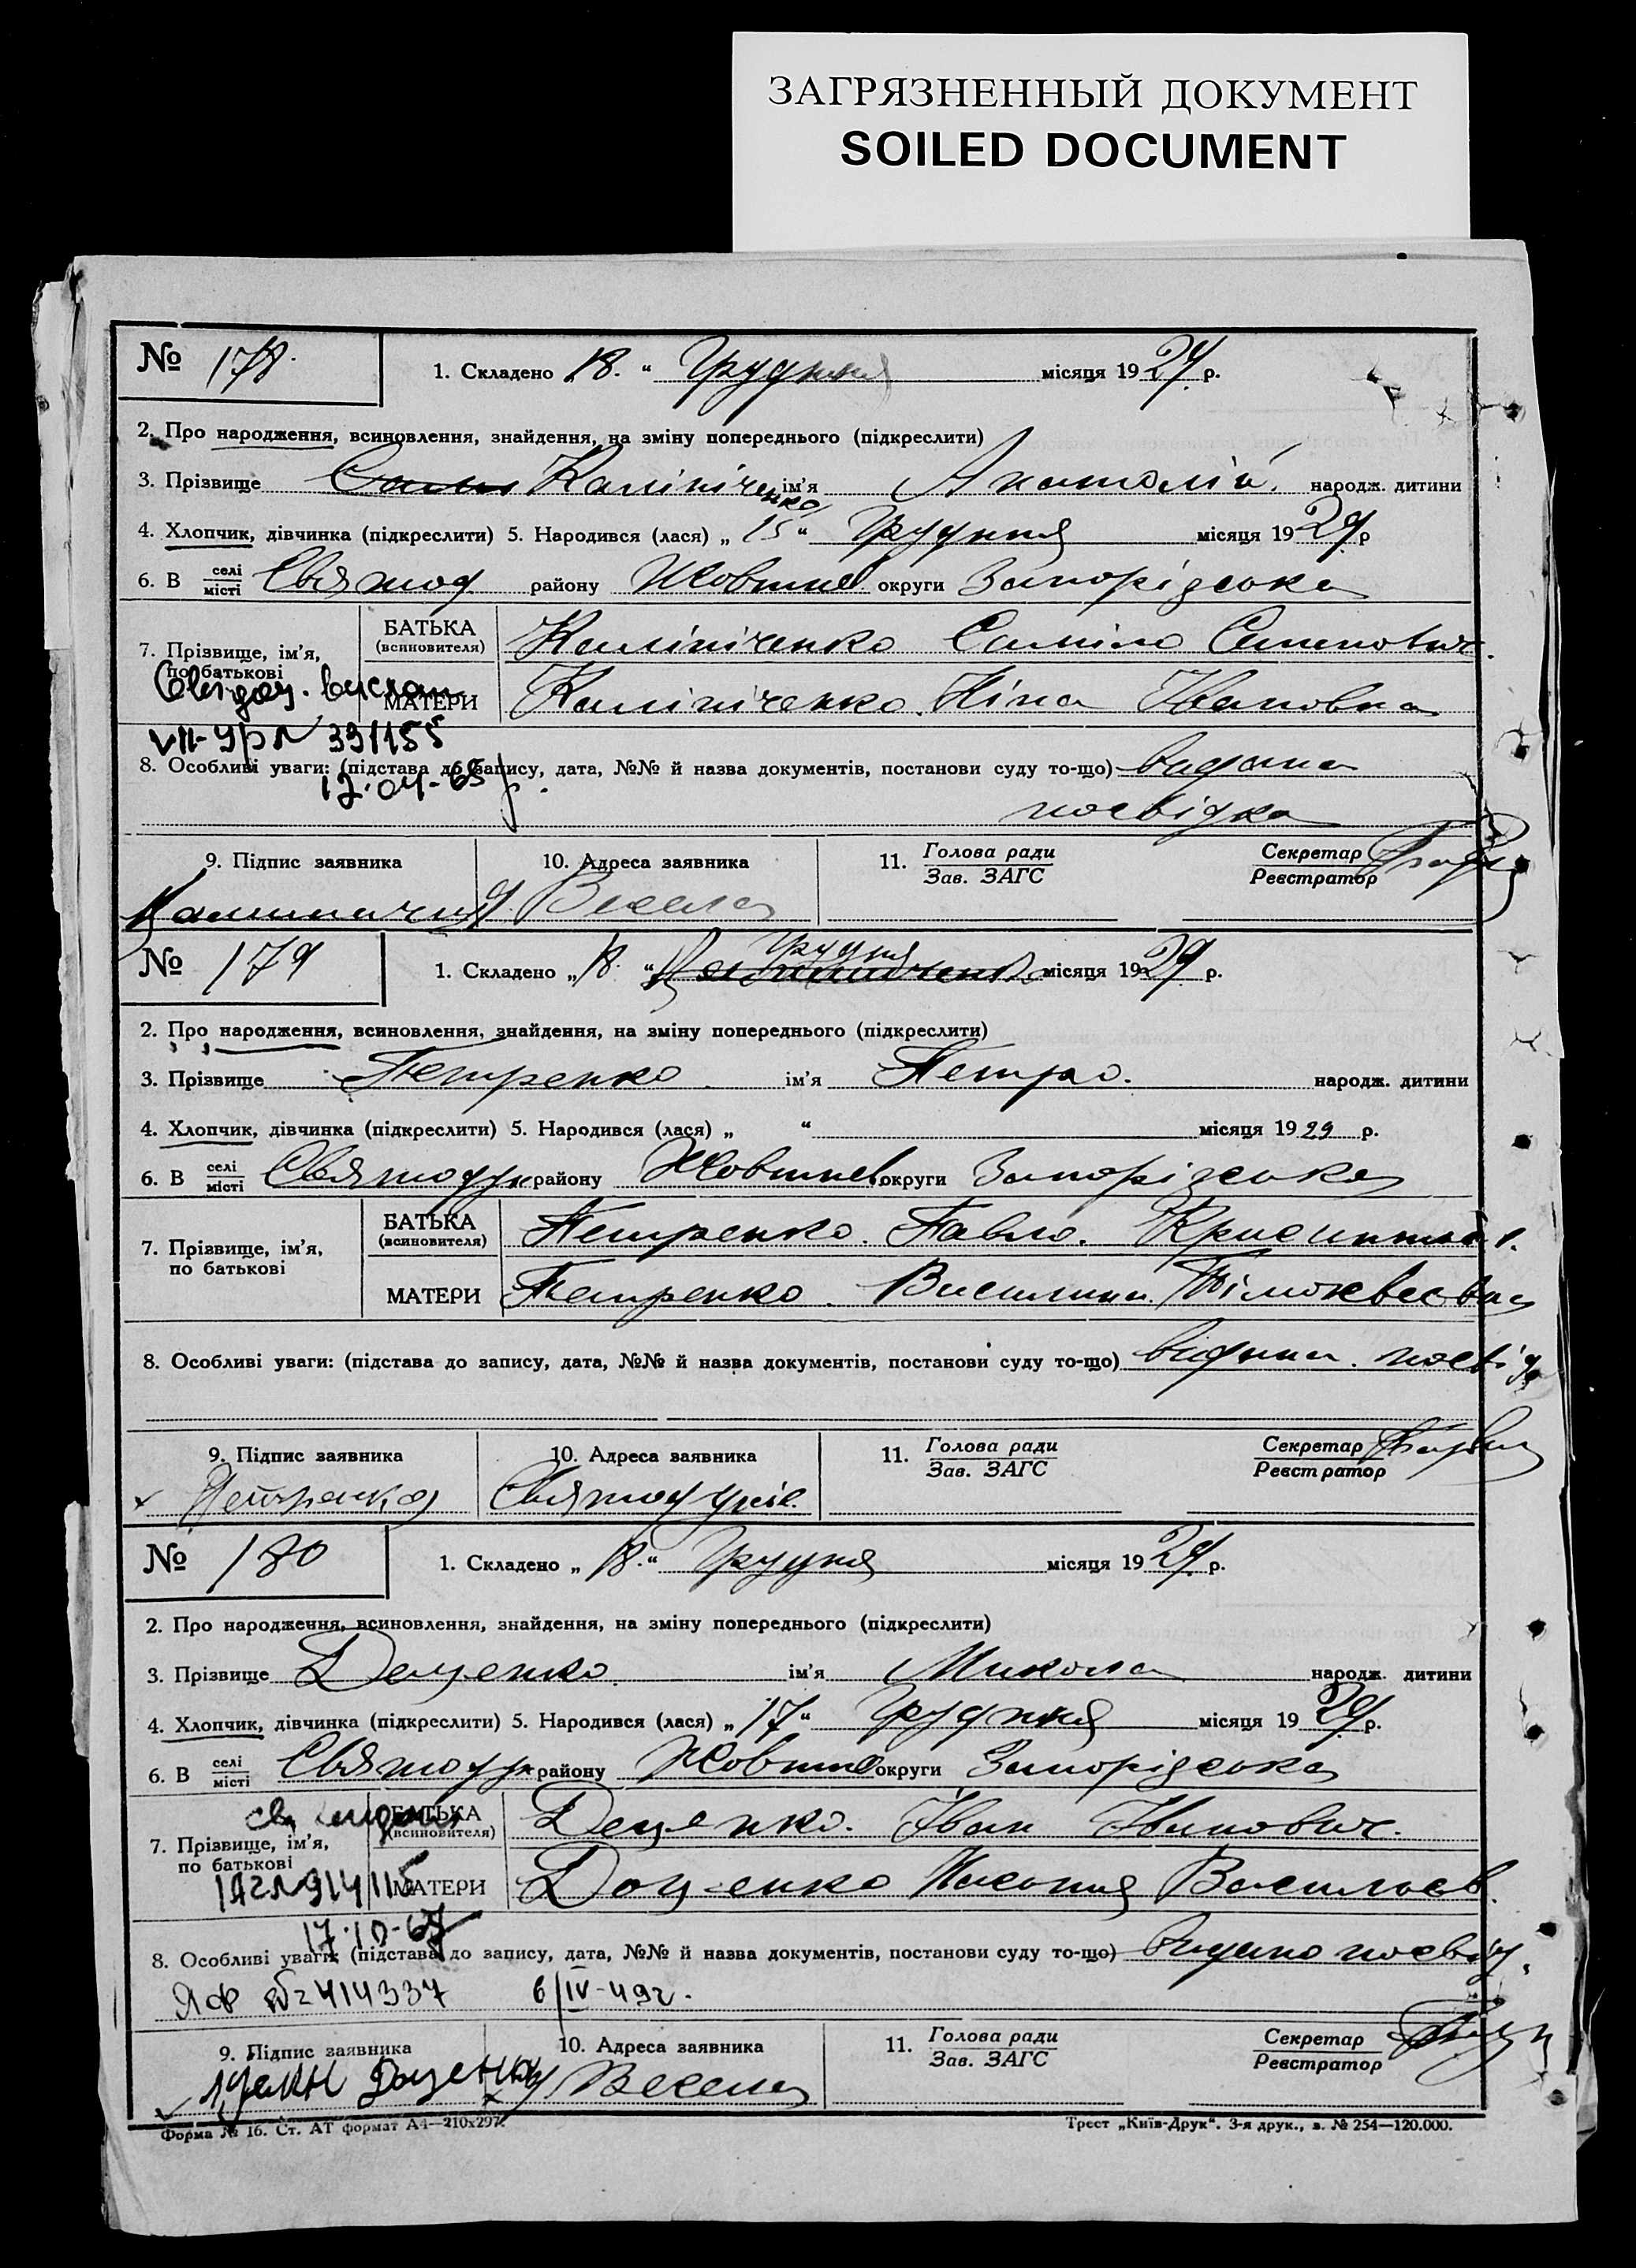 ЗАГРЯЗНЕННЫЙ ДОКУМЕНТ
SOILED DOCUMENT
№ 178. 1. Складено „18.“ Грудня місяця 1929 р.
2. Про народження, всиновлення, знайдення, на зміну попереднього (підкреслити)
3. Прізвище Калініченко ім'я Анатолій. народж. дитини
4. Хлопчик, дівчинка (підкреслити) 5. Народився (лася) „15“ Грудня місяця 1929 р
6. В селі місті Святод району Жовтнев округи Запорізська
7. Прізвище, ім'я, по батькові
БАТЬКА (всиновителя) Калініченко Семенович.
МАТЕРИ Калініченко Ніна Івановна
VII-УР № 391155
17.04-65
8. Особливі уваги: (підстава до запису, дата, №№ й назва документів, постанови суду то-що) видана
посвідка
9. Підпис заявника 10. Адреса заявника 11. Голова ради Зав. ЗАГС Секретар Реєстратор
Весела
№ 179 1. Складено „18.“ Грудня місяця 1929 р.
2. Про народження, всиновлення, знайдення, на зміну попереднього (підкреслити)
3. Прізвище Петренко ім'я Петро. народж. дитини
4. Хлопчик, дівчинка (підкреслити) 5. Народився (лася) „ “ місяця 1929 р.
6. В селі місті Святодух району Жовтнев. округи Запорізська
7. Прізвище, ім'я, по батькові
БАТЬКА (всиновителя) Петренко. Павло.
МАТЕРИ Петренко. Василина
8. Особливі уваги: (підстава до запису, дата, №№ й назва документів, постанови суду то-що) видана. посвід
9. Підпис заявника 10. Адреса заявника 11. Голова ради Зав. ЗАГС Секретар Реєстратор
Петренко
№ 180 1. Складено „18.“ Грудня місяця 1929 р.
2. Про народження, всиновлення, знайдення, на зміну попереднього (підкреслити)
3. Прізвище Доценко ім'я Микола народж. дитини
4. Хлопчик, дівчинка (підкреслити) 5. Народився (лася) „17“ Грудня місяця 1929 р.
6. В селі місті Святодух району Жовтнев округи Запорізська
7. Прізвище, ім'я, по батькові
БАТЬКА (всиновителя) Доценко. Іван Іванович.
МАТЕРИ Доценко Василь єв.
17.10-67
8. Особливі уваги: (підстава до запису, дата, №№ й назва документів, постанови суду то-що) видано посвід.
ЯФ № 414337 6/IV-49г.
9. Підпис заявника 10. Адреса заявника 11. Голова ради Зав. ЗАГС Секретар Реєстратор
Доценко Весела
Форма № 16. Ст. АТ формат А4—210х297. Трест „Київ-Друк“. 3-я друк., з. № 254—120.000.